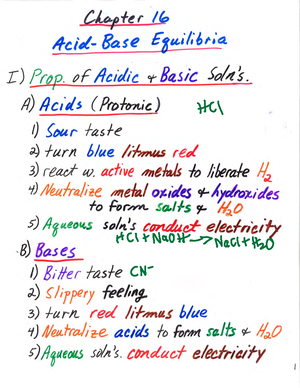 Chapter 16
Acid-Base Equilibria
I) Prop. of Acidic & Basic Soln's.
A) Acids (Protonic) HCl
1) Sour taste
2) turn blue litmus red
3) react w. active metals to liberate H2
4) Neutralize metal oxides & hydroxides
to form salts & H2O
5) Aqueous soln's conduct electricity
HCl + NaOH → NaCl + H2O
B) Bases
1) Bitter taste CN-
2) Slippery feeling
3) turn red litmus blue
4) Neutralize acids to form salts & H2O
5) Aqueous soln's. conduct electricity
1